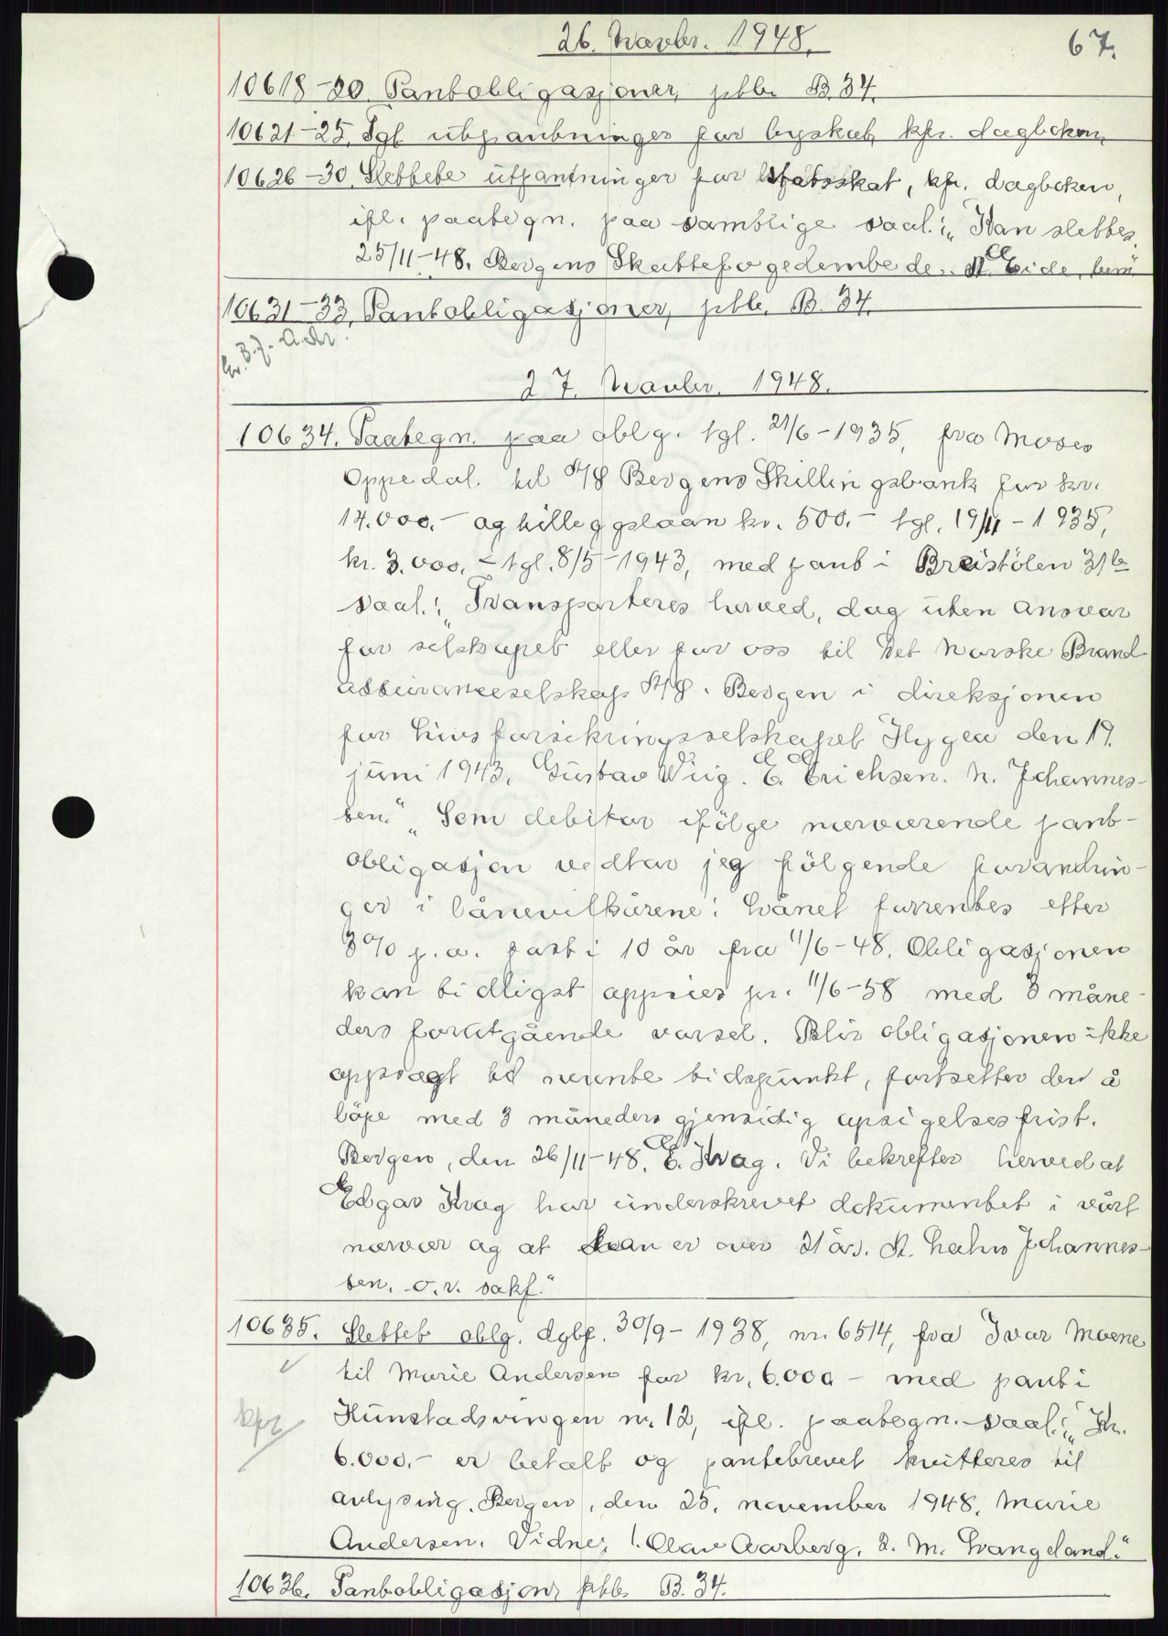 26. Novbr. 1948.
67.
10618-20. Pantobligasjoner, ptb. B. 34.
10621-25. Tgl. utpantninger for byskat, kfr. dagboken,
10626-30. Slettete utpantninger for statsskat, kfr. dagboken,
ifl. paategn. paa samtlige saal.: „Kan slettes.
25/11-48. Bergens Skattefogedembede. A. Eide, bem."
10631-33. Pantobligasjoner, ptb. B. 34.
27. Novbr. 1948.
10634. Paategn. paa oblg. tgl. 21/6-1935, fra Moses
Oppedal til A/S Bergens Skillingsbank for kr.
14.000.- og tilleggslaan kr. 500.- tgl. 19/11-1935,
kr. 3.000.- tgl. 8/5-1943, med pant i Breistölen 31b
saal.: „Transporteres herved, dog uten ansvar
for selskapet eller for oss til Det Norske Brand
assuranceselskap A/S. Bergen i direksjonen
for Livsforsikringsselskapet Hygea den 19.
juni 1943. Gustav Wiig. E. Erichsen. N. Johannes-
sen." „Som debitor ifölge nærværende pant-
obligasjon vedtar jeg fölgende forandrin-
ger i lånevilkårene: Lånet forrentes efter
3% p.a. fast i 10 år fra 11/6-48. Obligasjonen
kan tidligst oppsies pr. 11/6-58 med 3 måne-
ders forutgående varsel. Blir obligasjonen ikke
oppsagt til nevnte tidspunkt, fortsetter den å
löpe med 3 måneders gjensidig opsigelsesfrist.
Bergen, den 26/11-48. E. Krag. Vi bekrefter herved at
Edgar Krag har underskrevet dokumentet i vårt
nærvær og at han er over 21 år. A. Hahn Johannes-
sen. o.r. sakf."
10635. Slettet oblg. dgbf. 30/9-1938, nr. 6514, fra Ivar Moene
til Marie Andersen for kr. 6.000 - med pant i
kfr
Hunstadsvingen nr. 12, ifl. paategn. saal.: „Kr.
6.000.- er betalt og pantebrevet kvitteres til
avlysing. Bergen, den 25. november 1948. Marie
Andersen. Vidne: 1. Olav Aarberg. 2. M. Svangeland."
10636. Pantobligasjon, ptb. B. 34.